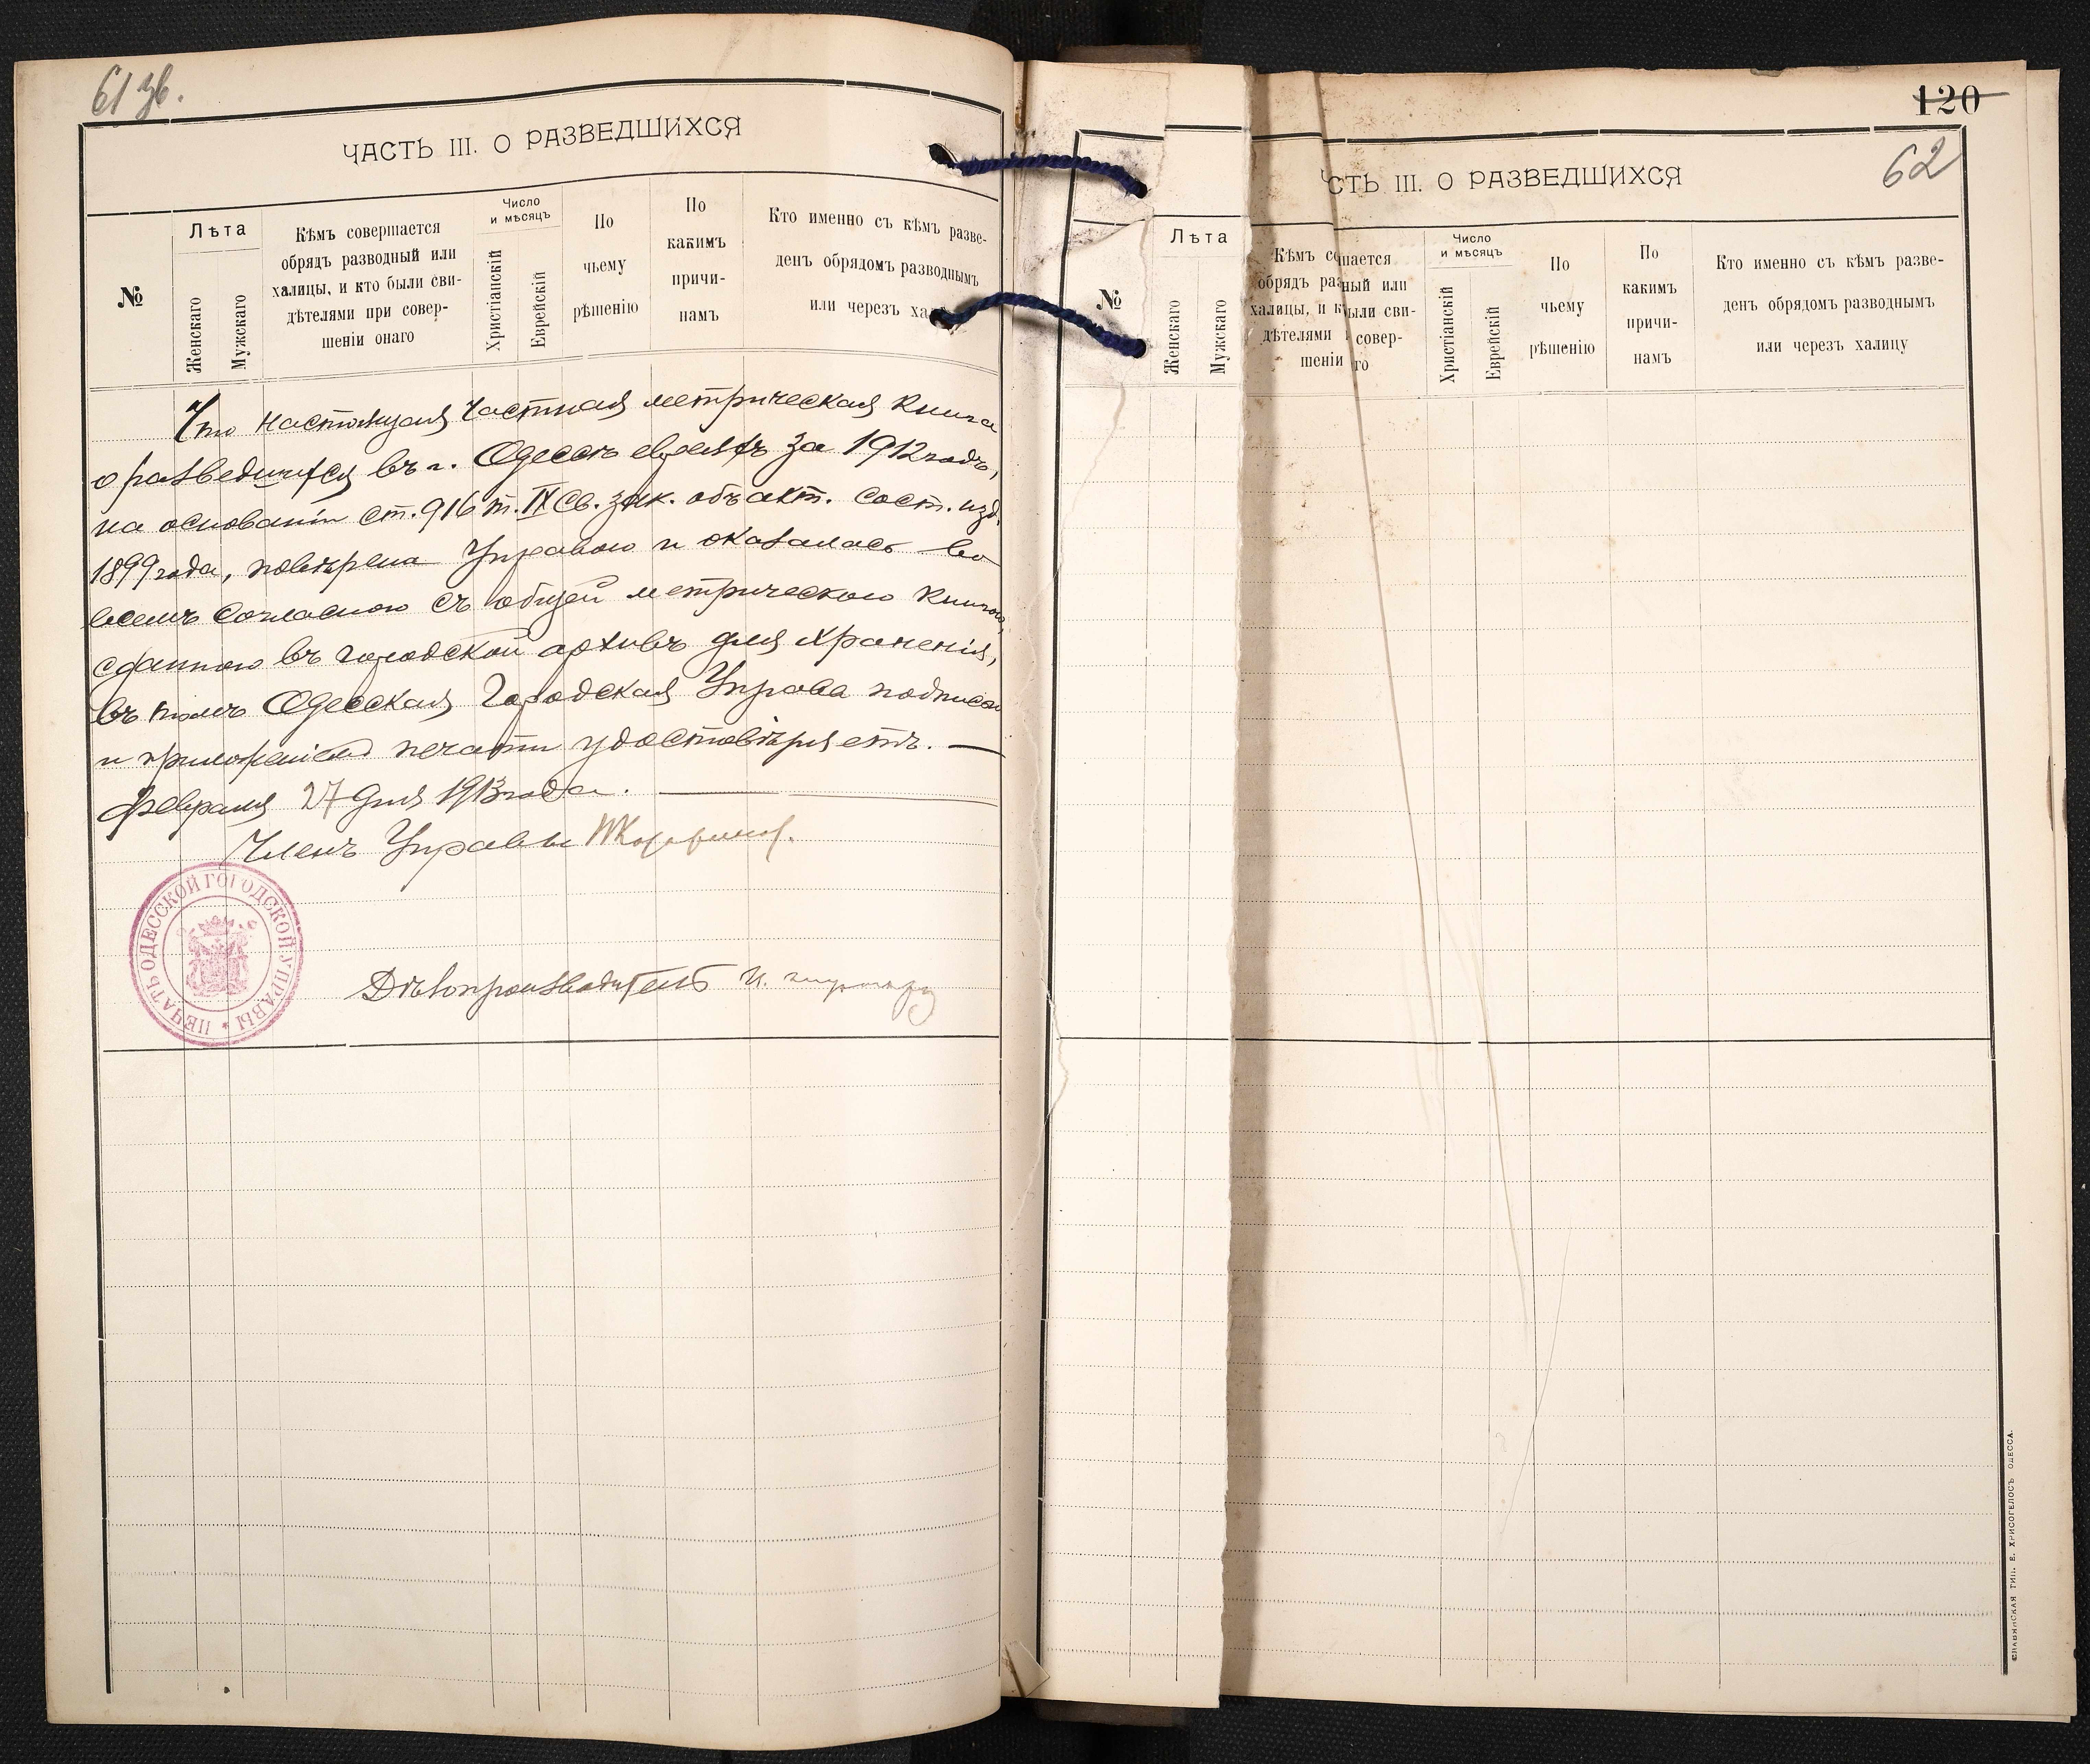 61 зв.
ЧАСТЬ III. О РАЗВЕДШИХСЯ
№
Лѣта
Женскаго
Мужскаго
Кѣмъ совершается
обрядъ разводный или
халицы, и кто были сви-
дѣтелями при совер-
шеніи онаго
Число
и мѣсяцъ
Христіанскій
Еврейскій
По
чьему
рѣшенію
По
какимъ
причи-
намъ
Кто именно съ кѣмъ разве-
денъ обрядомъ разводнымъ
или черезъ ха
Что настоящая частная метрическая книга
о разведшихся въ г. Одессѣ евреяхъ за 1912 годъ,
на основаніи ст. 916 т. IX Св. зак. объ акт. сост. изд.
1899 года, повѣрена Управою и оказалась во
всемъ согласною съ общей метрическою книгою,
сданною въ городской архивъ для храненія,
въ томъ Одесская Городская Управа подписью
и приложеніемъ печати удостовѣряетъ. —
Февраля 27 дня 1913 года. —
Членъ Управы
ПЕЧАТЬ ОДЕССКОЙ ГОРОДСКОЙ УПРАВЫ *
Дѣлопроизводитель
120
62
№
Лѣта
Женскаго
Мужскаго
СТЬ III. О РАЗВЕДШИХСЯ
Кѣмъ с шается
обрядъ раз ный или
халицы, и к ыли сви-
дѣтелями совер-
шеніи го
Число
и мѣсяцъ
Христіанскій
Еврейскій
По
чьему
рѣшенію
По
какимъ
причи-
намъ
Кто именно съ кѣмъ разве-
денъ обрядомъ разводнымъ
или черезъ халицу
СЛАВЯНСКАЯ ТИП. Е. ХРИСОГЕЛОСЪ ОДЕССА.